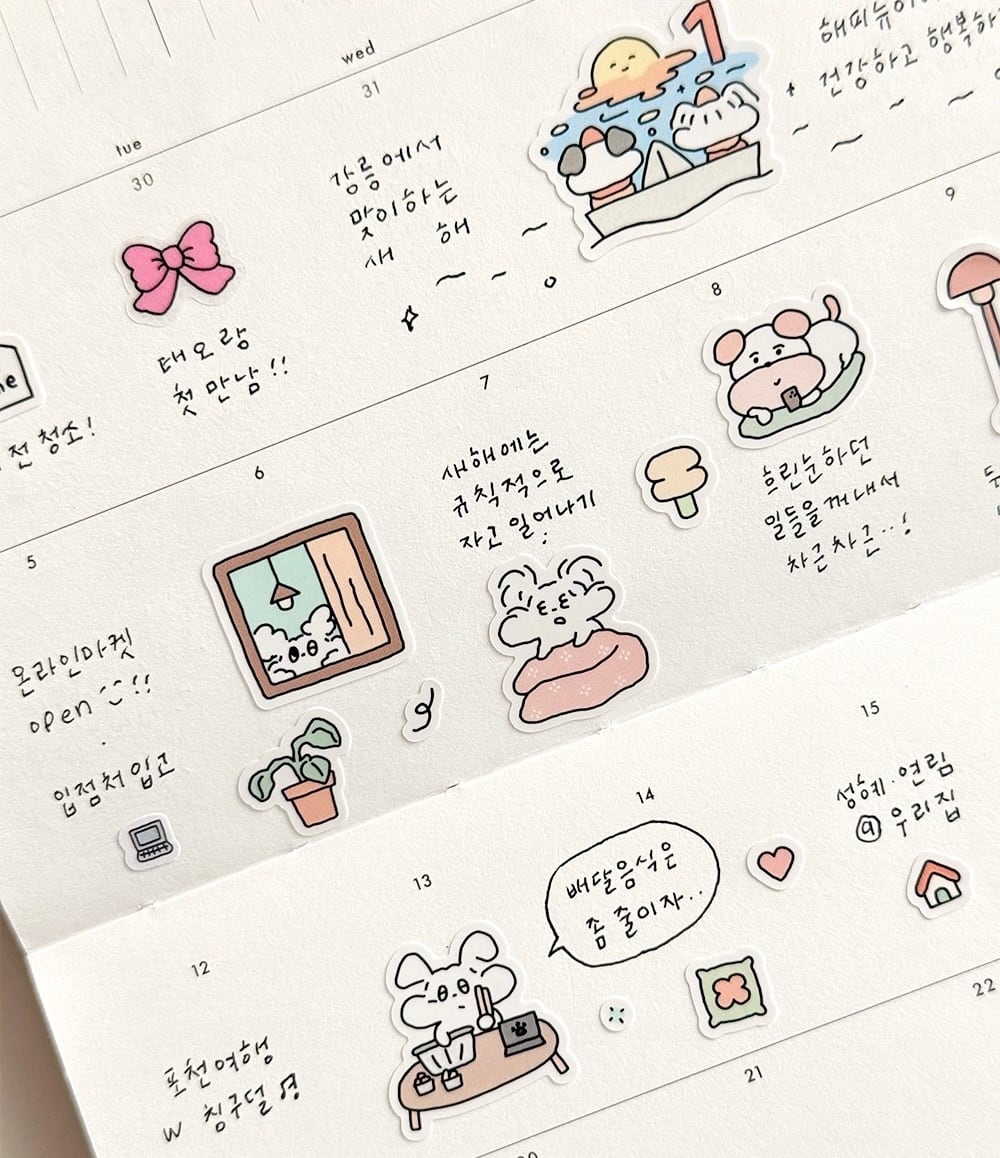 tue
wed
30
31
태오랑
첫 만남!!
강릉에서
맞이하는
새 해
1
해피뉴이
건강하고 행복하
me
전 청소!
5
온라인마켓
open !!
입점처 입고
6
7
새해에는
규칙적으로
자고 일어나기
8
흐린눈하던
일들을 꺼내서
차근차근..!
9
12
포천여행
w 칭구덜 영
13
14
배달음식은
좀 줄이자..
15
성혜·연림
@ 우리집
21
22